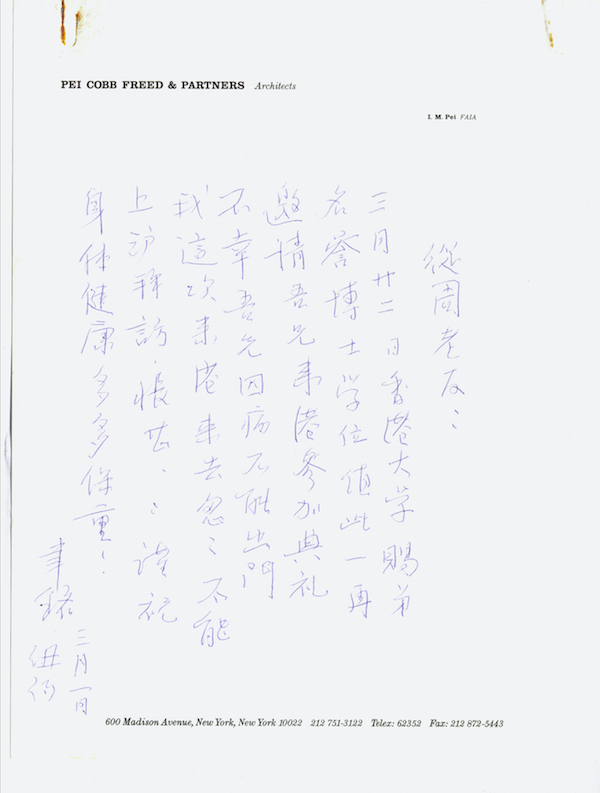 PEI COBB FREED & PARTNERS Architects
I. M. Pei FAIA
從周老友：
三月廿二日香港大学賜弟
名誉博士学位値此一再
邀請吾兄来港参加典礼
不幸吾兄因病不能出門
我這次来港来去忽〻不能
上訪拜訪．悵甚．〻謹祝
身体健康多多保重！
聿銘
三月一日
紐約
600 Madison Avenue, New York, New York 10022 212 751-3122 Telex: 62352 Fax: 212 872-5443